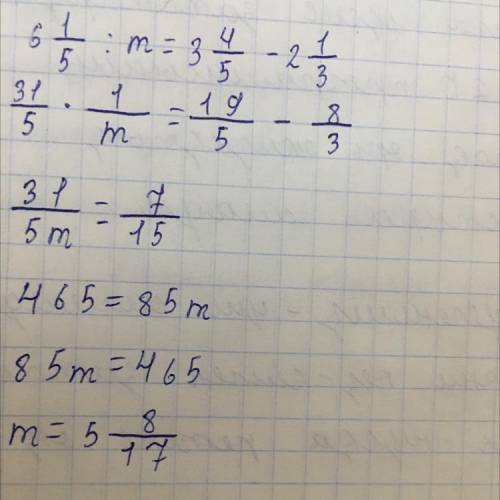 6 1/5 : m = 3 4/5 - 2 1/3
31/5 · 1/m = 19/5 - 8/3
31/5m = 7/15
465 = 85m
85m = 465
m = 5 8/17